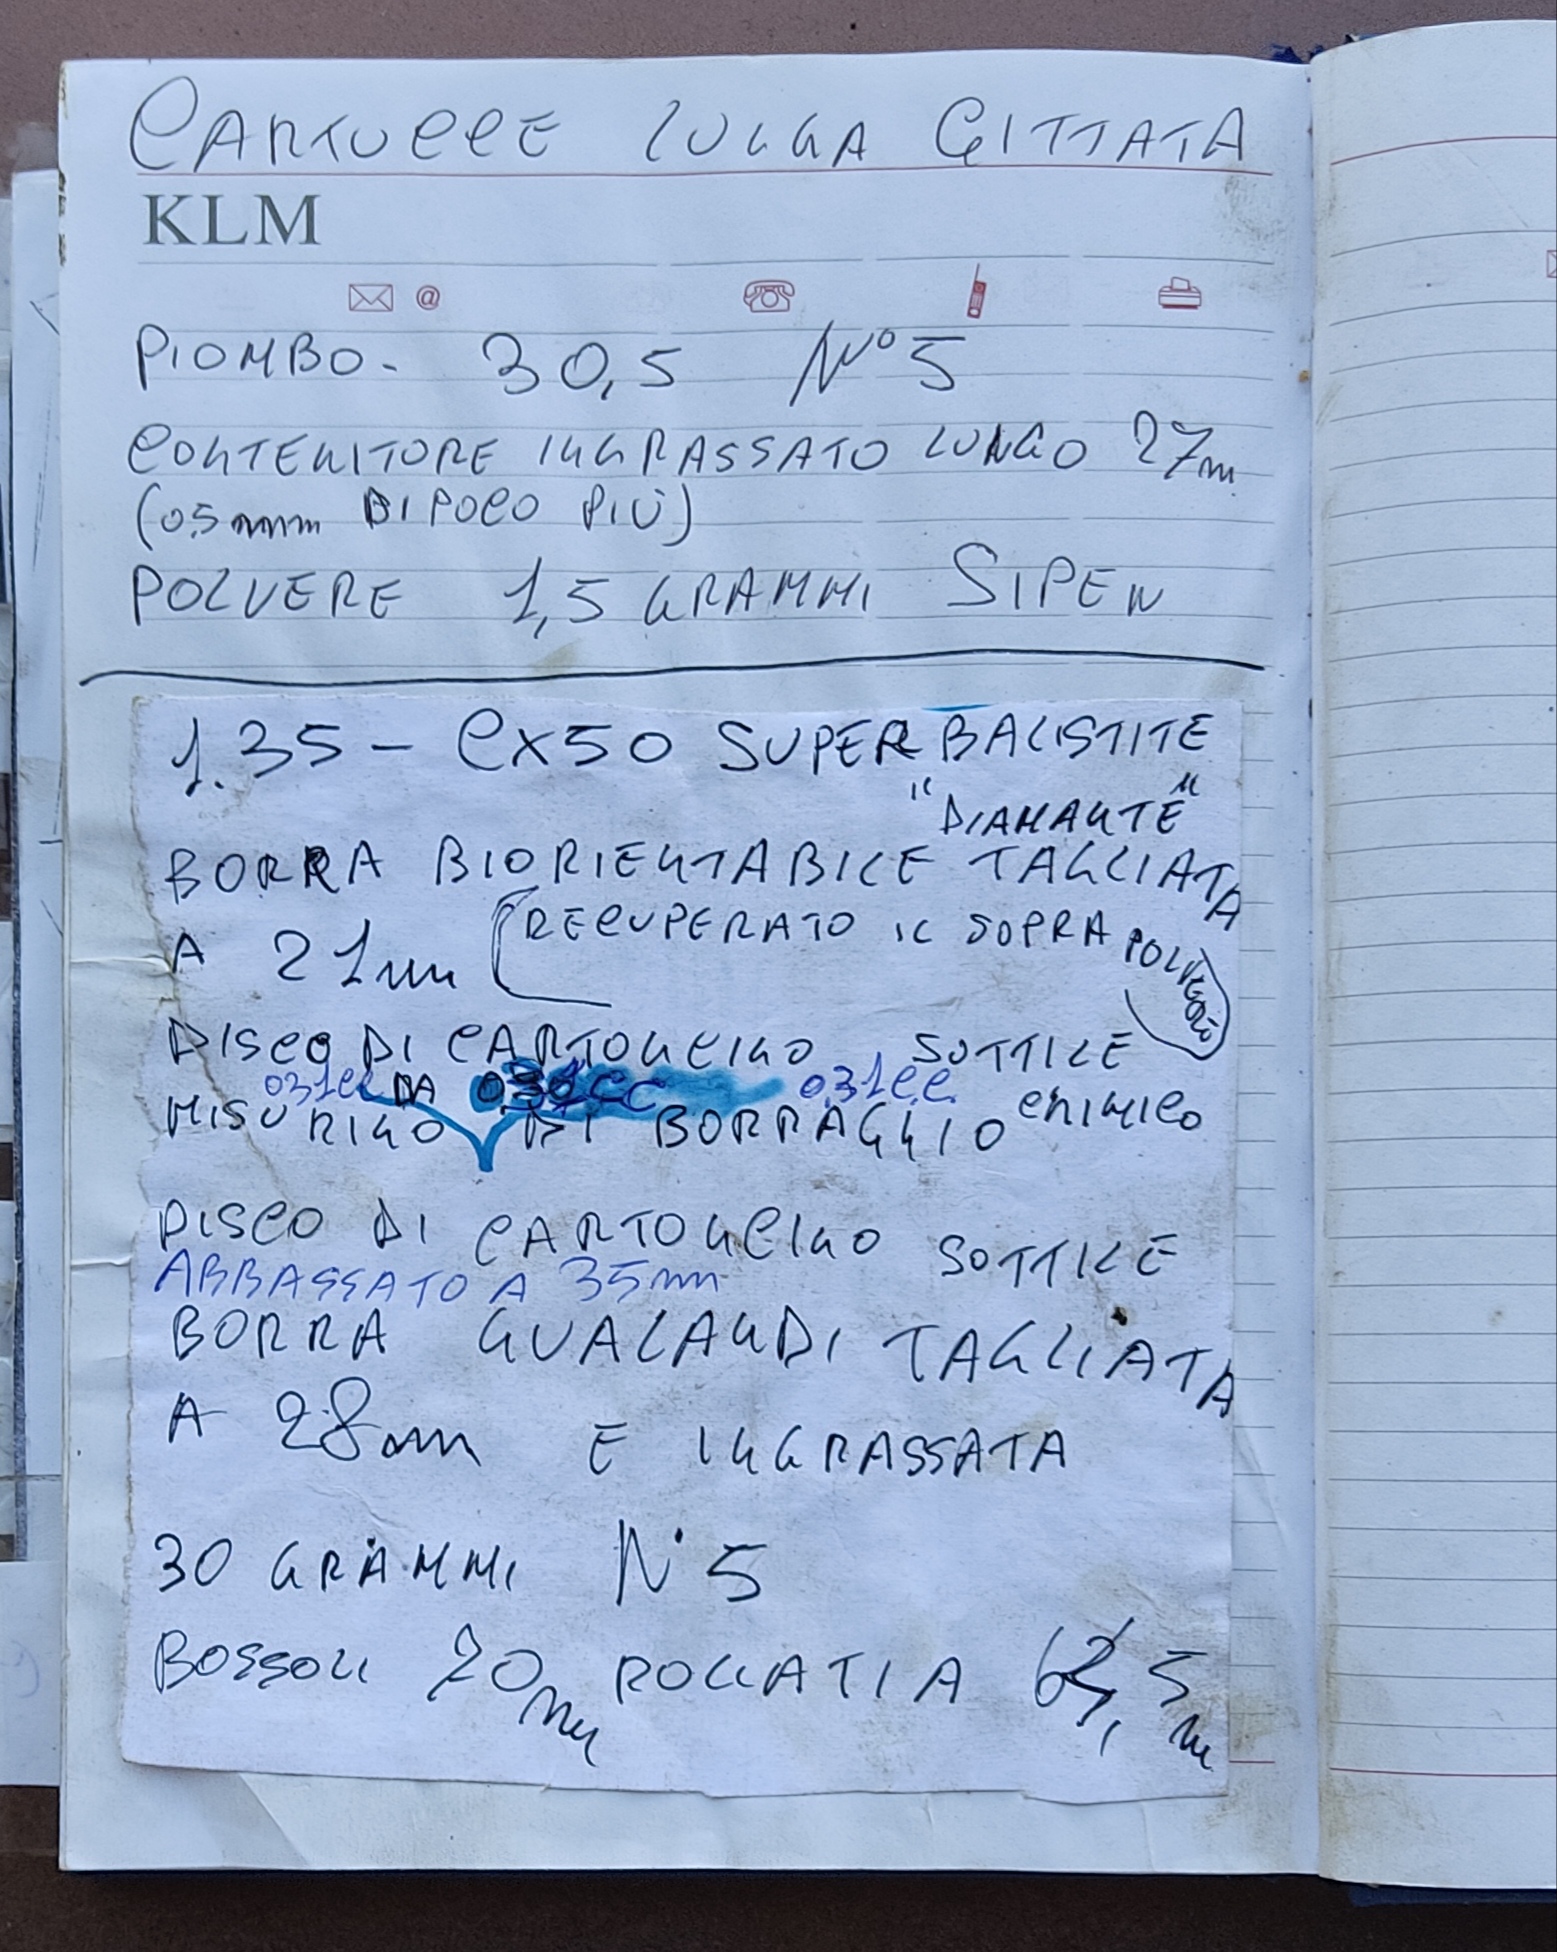 CARTUCCE LUNGA GITTATA
KLM
@
PIOMBO - 30,5 N° 5
CONTENITORE INGRASSATO LUNGO 27m
(0,5 mmm DI POCO PIÙ)
POLVERE 1,5 GRAMMI SIPE N
1.35 - CX50 SUPERBALISTITE
"DIAMANTE"
BORRA BIORIENTABILE TAGLIATA
A 21mm (RECUPERATO IL SOPRA POLVERE)
DISCO DI CARTONCINO SOTTILE
031CC DA 031CC 0.31C.C.
MISURINO DI BORRAGGIO CHIMICO
DISCO DI CARTONCINO SOTTILE
ABBASSATO A 35mm
BORRA GUALANDI TAGLIATA
A 28mm E INGRASSATA
30 GRAMMI N° 5
BOSSOLI 70mm ROLLATI A 5m